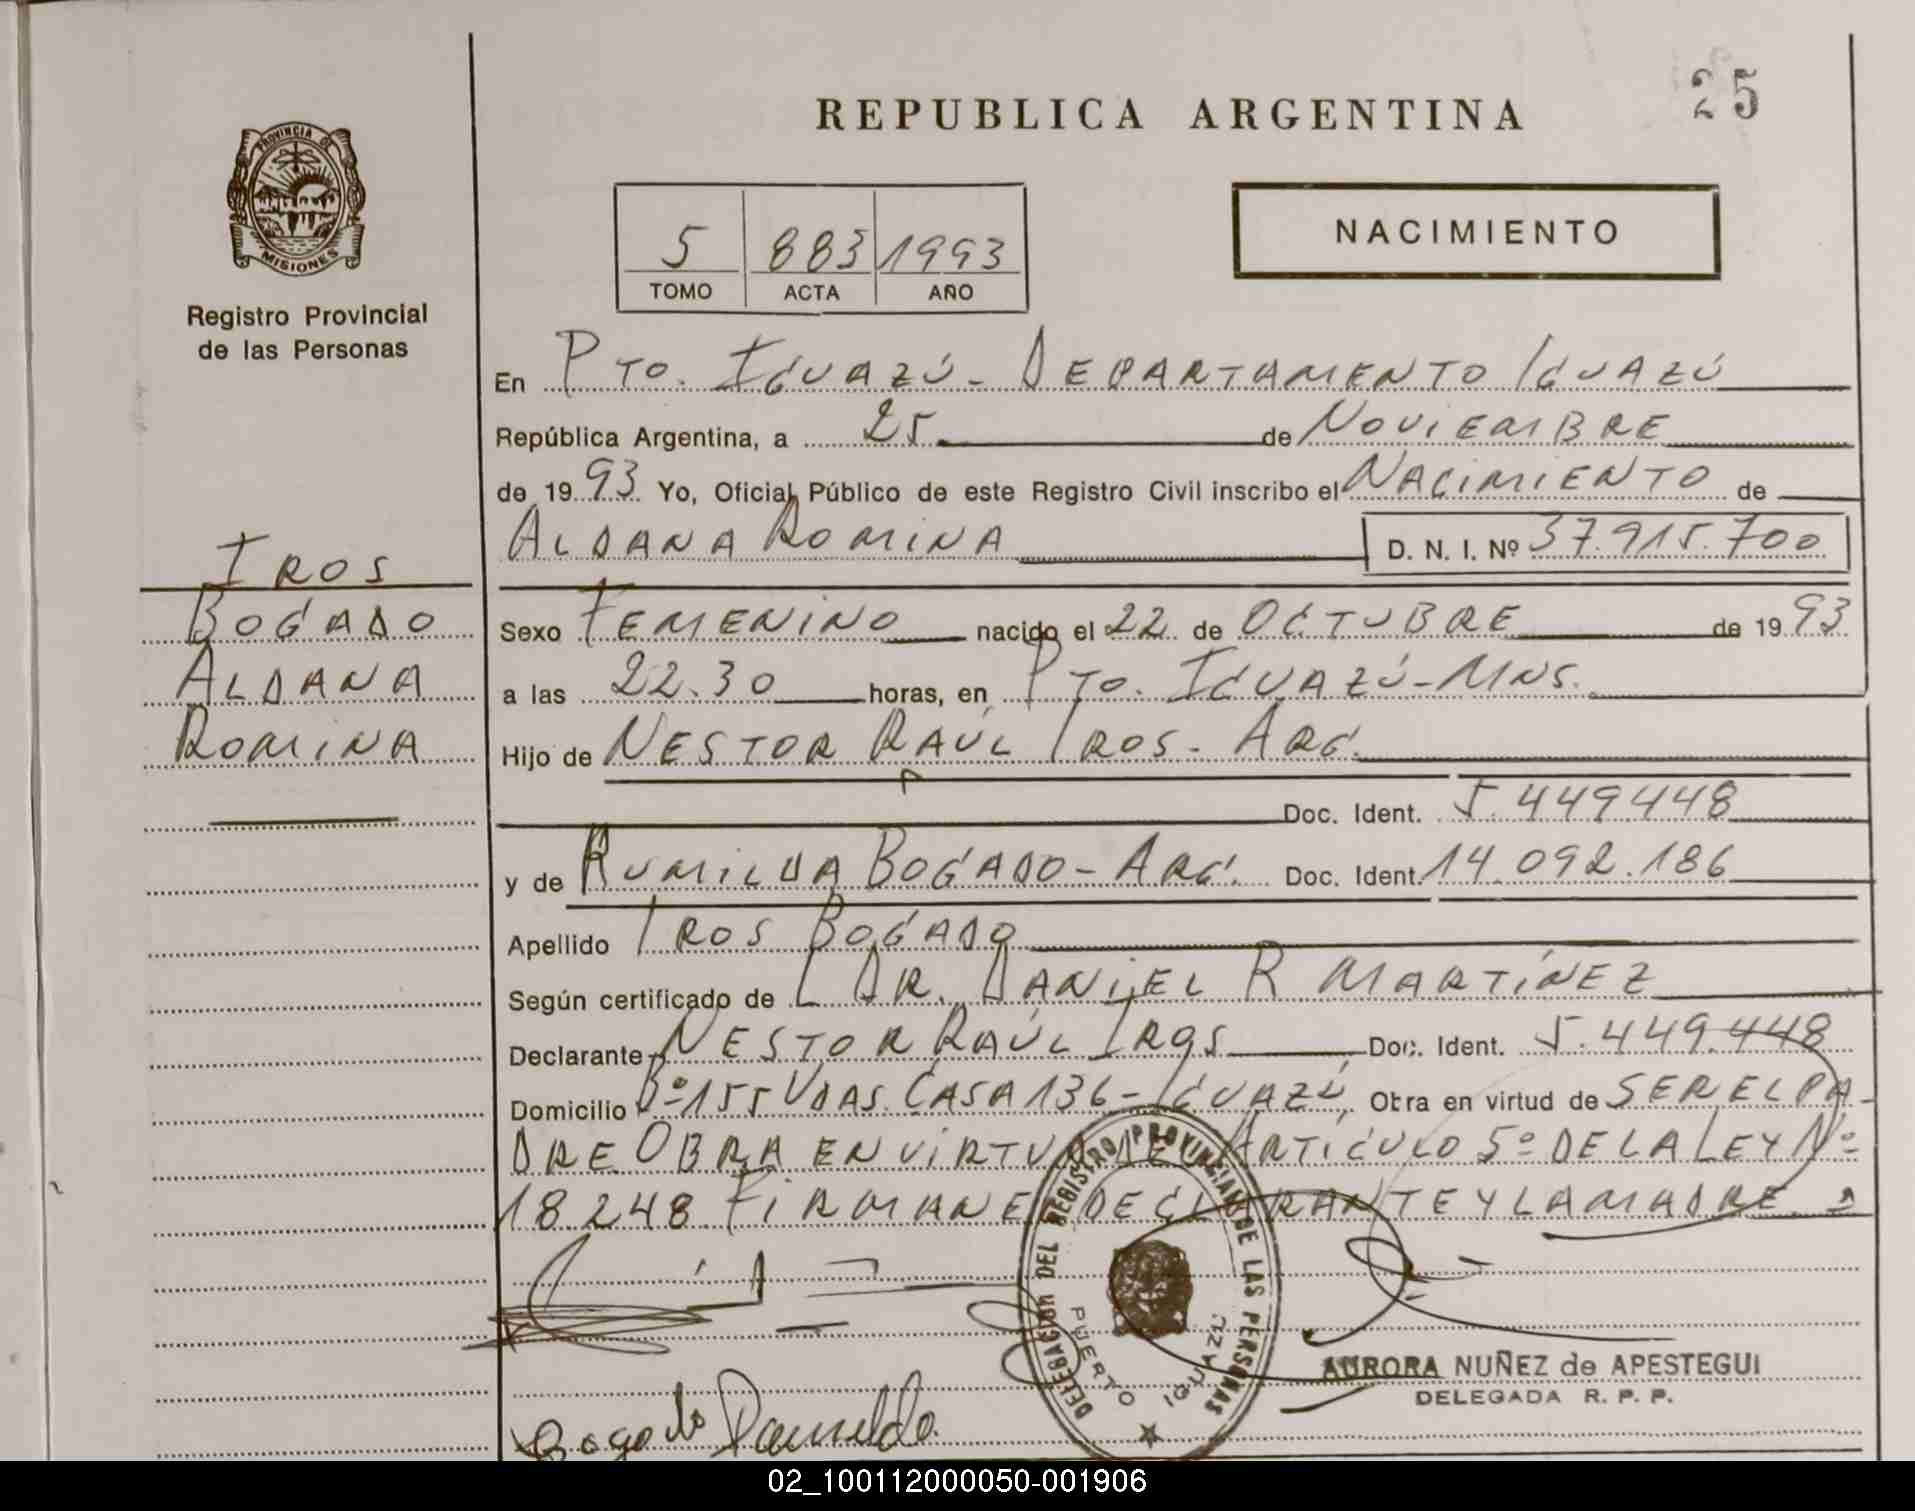 REPUBLICA ARGENTINA
25
PROVINCIA DE
MISIONES
Registro Provincial
de las Personas
5 883 1993
TOMO ACTA AÑO
NACIMIENTO
En PTO. IGUAZÚ - DEPARTAMENTO IGUAZÚ
República Argentina, a 25 de NOVIEMBRE
de 1993 Yo, Oficial Público de este Registro Civil inscribo el NACIMIENTO de
ALDANA ROMINA D. N. I. Nº 37.915.700
IROS
BOGADO
ALDANA
ROMINA
Sexo FEMENINO nacido el 22 de OCTUBRE de 1993
a las 22.30 horas, en PTO. IGUAZÚ - MNS.
Hijo de NESTOR RAÚL IROS - ARG.
Doc. Ident. 5.449448
y de RUMILDA BOGADO - ARG. Doc. Ident. 14.092.186
Apellido IROS BOGADO
Según certificado de L DR. DANIEL R MARTÍNEZ
Declarante NESTOR RAÚL IROS Doc. Ident. 5.449.448
Domicilio Bº 155 VDAS. CASA 136 - IGUAZÚ, Obra en virtud de SER EL PA-
DRE OBRA EN VIRTUD DE ARTÍCULO 5º DE LA LEY Nº
18.248 FIRMAN EL DECLARANTE Y LA MADRE.
DELEGACION DEL REGISTRO PROVINCIAL DE LAS PERSONAS
PUERTO IGUAZU
AURORA NUÑEZ de APESTEGUI
DELEGADA R. P. P.
Bogado
02_100112000050-001906